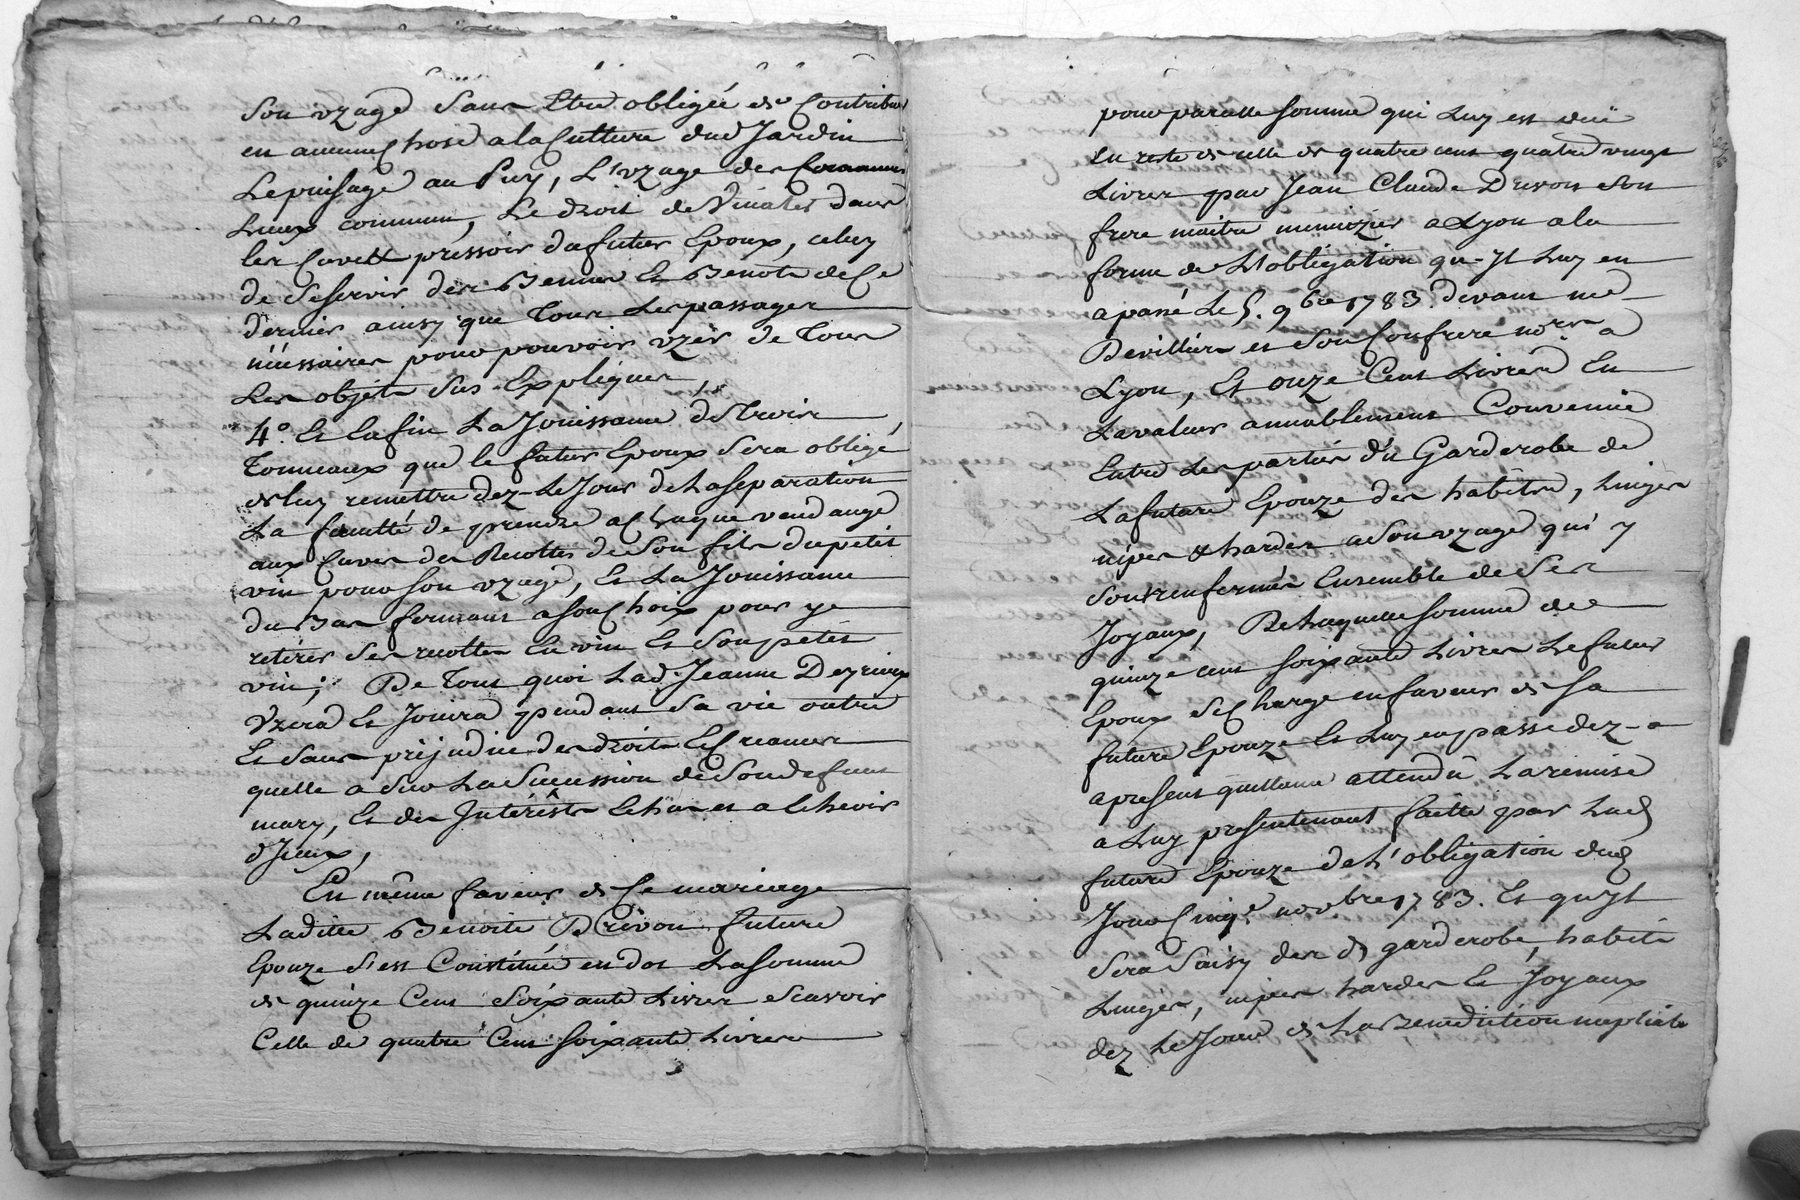 son uzage sans Etre obligée de Contribuer
en aucune Chose a la Culture dud Jardin
Le puisage au Puy, L'uzage des
Lieux communs, Le droit de dans
les Cave et pressoir du futur Epoux, celuy
de Se servir des Bennes Et Benots de Ce
dernier ainsy que Tous Les passages
nécessaires pour pouvoir uzer de Tous
Les objets sus-Expliqués,
4° Et Enfin La Jouissance de Trois
Tonneaux que le futur Epoux Sera obligé
de luy remettre dez-Le Jour de La separation
La faculté de prendre a Chaque vendange
aux Cuves des Recoltes de Son fils du petit
vin pour Son uzage, Et La Jouissance
du a son Choix pour y
retirer Ses recoltes En vin Et Son petit
vin; De Tout quoi Lad. Jeanne Deyrieux
Uzera Et Jouira pendant Sa vie outre
Et Sans préjudice des droits Et Creances
quelle a Sur La Succession de Son defunt
mary, Et des Intérêsts Echus et a Echeoir
d'Iceux,
En même faveur de Ce mariage
Laditte Benoite Drevon future
Epouze S'est Constituée en dot La Somme
de quinze Cent Soixante Livres Scavoir
Celle de quatre Cent Soixante Livres
pour pareille somme qui Luy est düe
En reste de celle de quatre cent quatre vingt
Livres par Jean Claude Drevon Son
frere maitre menuizier a Lyon a la
forme de L'obligation qu-Jl Luy en
a passé Le 5. 9bre 1783. devant me
Devilliers et Son Confrere nores a
Lyon, Et onze Cent Livres En
La valeur amiablement Convenue
Entre Les parties du Garderobe de
La future Epouze des habits, Linges
nipes & hardes a Son uzage qui y
Sont renfermés Ensemble de Ses
Joyaux, De Laquelle Somme de
quinze cent soixante Livres Le futur
Epoux se Charge en faveur de Sa
future Epouze Et Luy en passe dez-a
a present quittance attendu La remise
a Luy presentement faitte par Lad
future Epouze de L'obligation dud
Jour Cinqe novbre 1783. Et qu'Jl
Sera Saisy des d garderobe, habits
Linges, nipes hardes Et Joyaux
dez Le Jour de La Benediction nuptiale